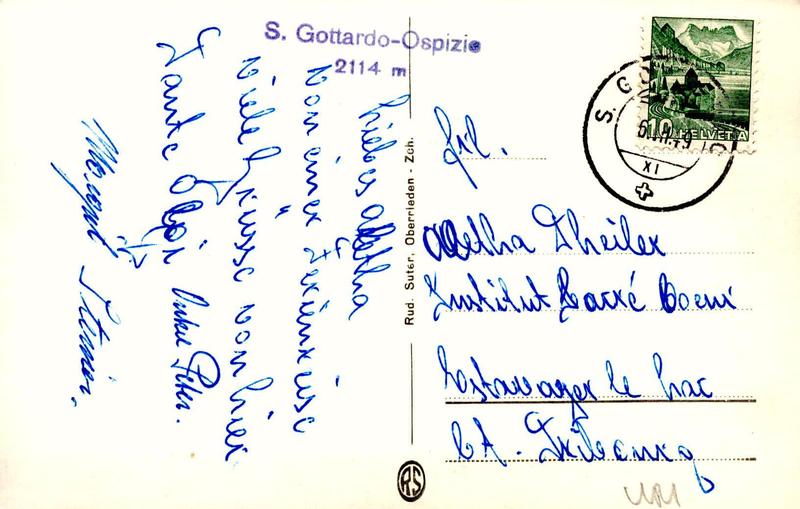 S. Gottardo-Ospizio
2114 m
Liebes Aletha
von einer Ferienreise
viele Grüsse von hier
Tante
Onkel Peter.
Frl.
Aletha Theiler
Institut Sacré Coeur
Estavayer le Lac
Ct. Fribourg
Rud. Suter, Oberrieden - Zch.
RS
10 HELVETIA
S. GO
XI